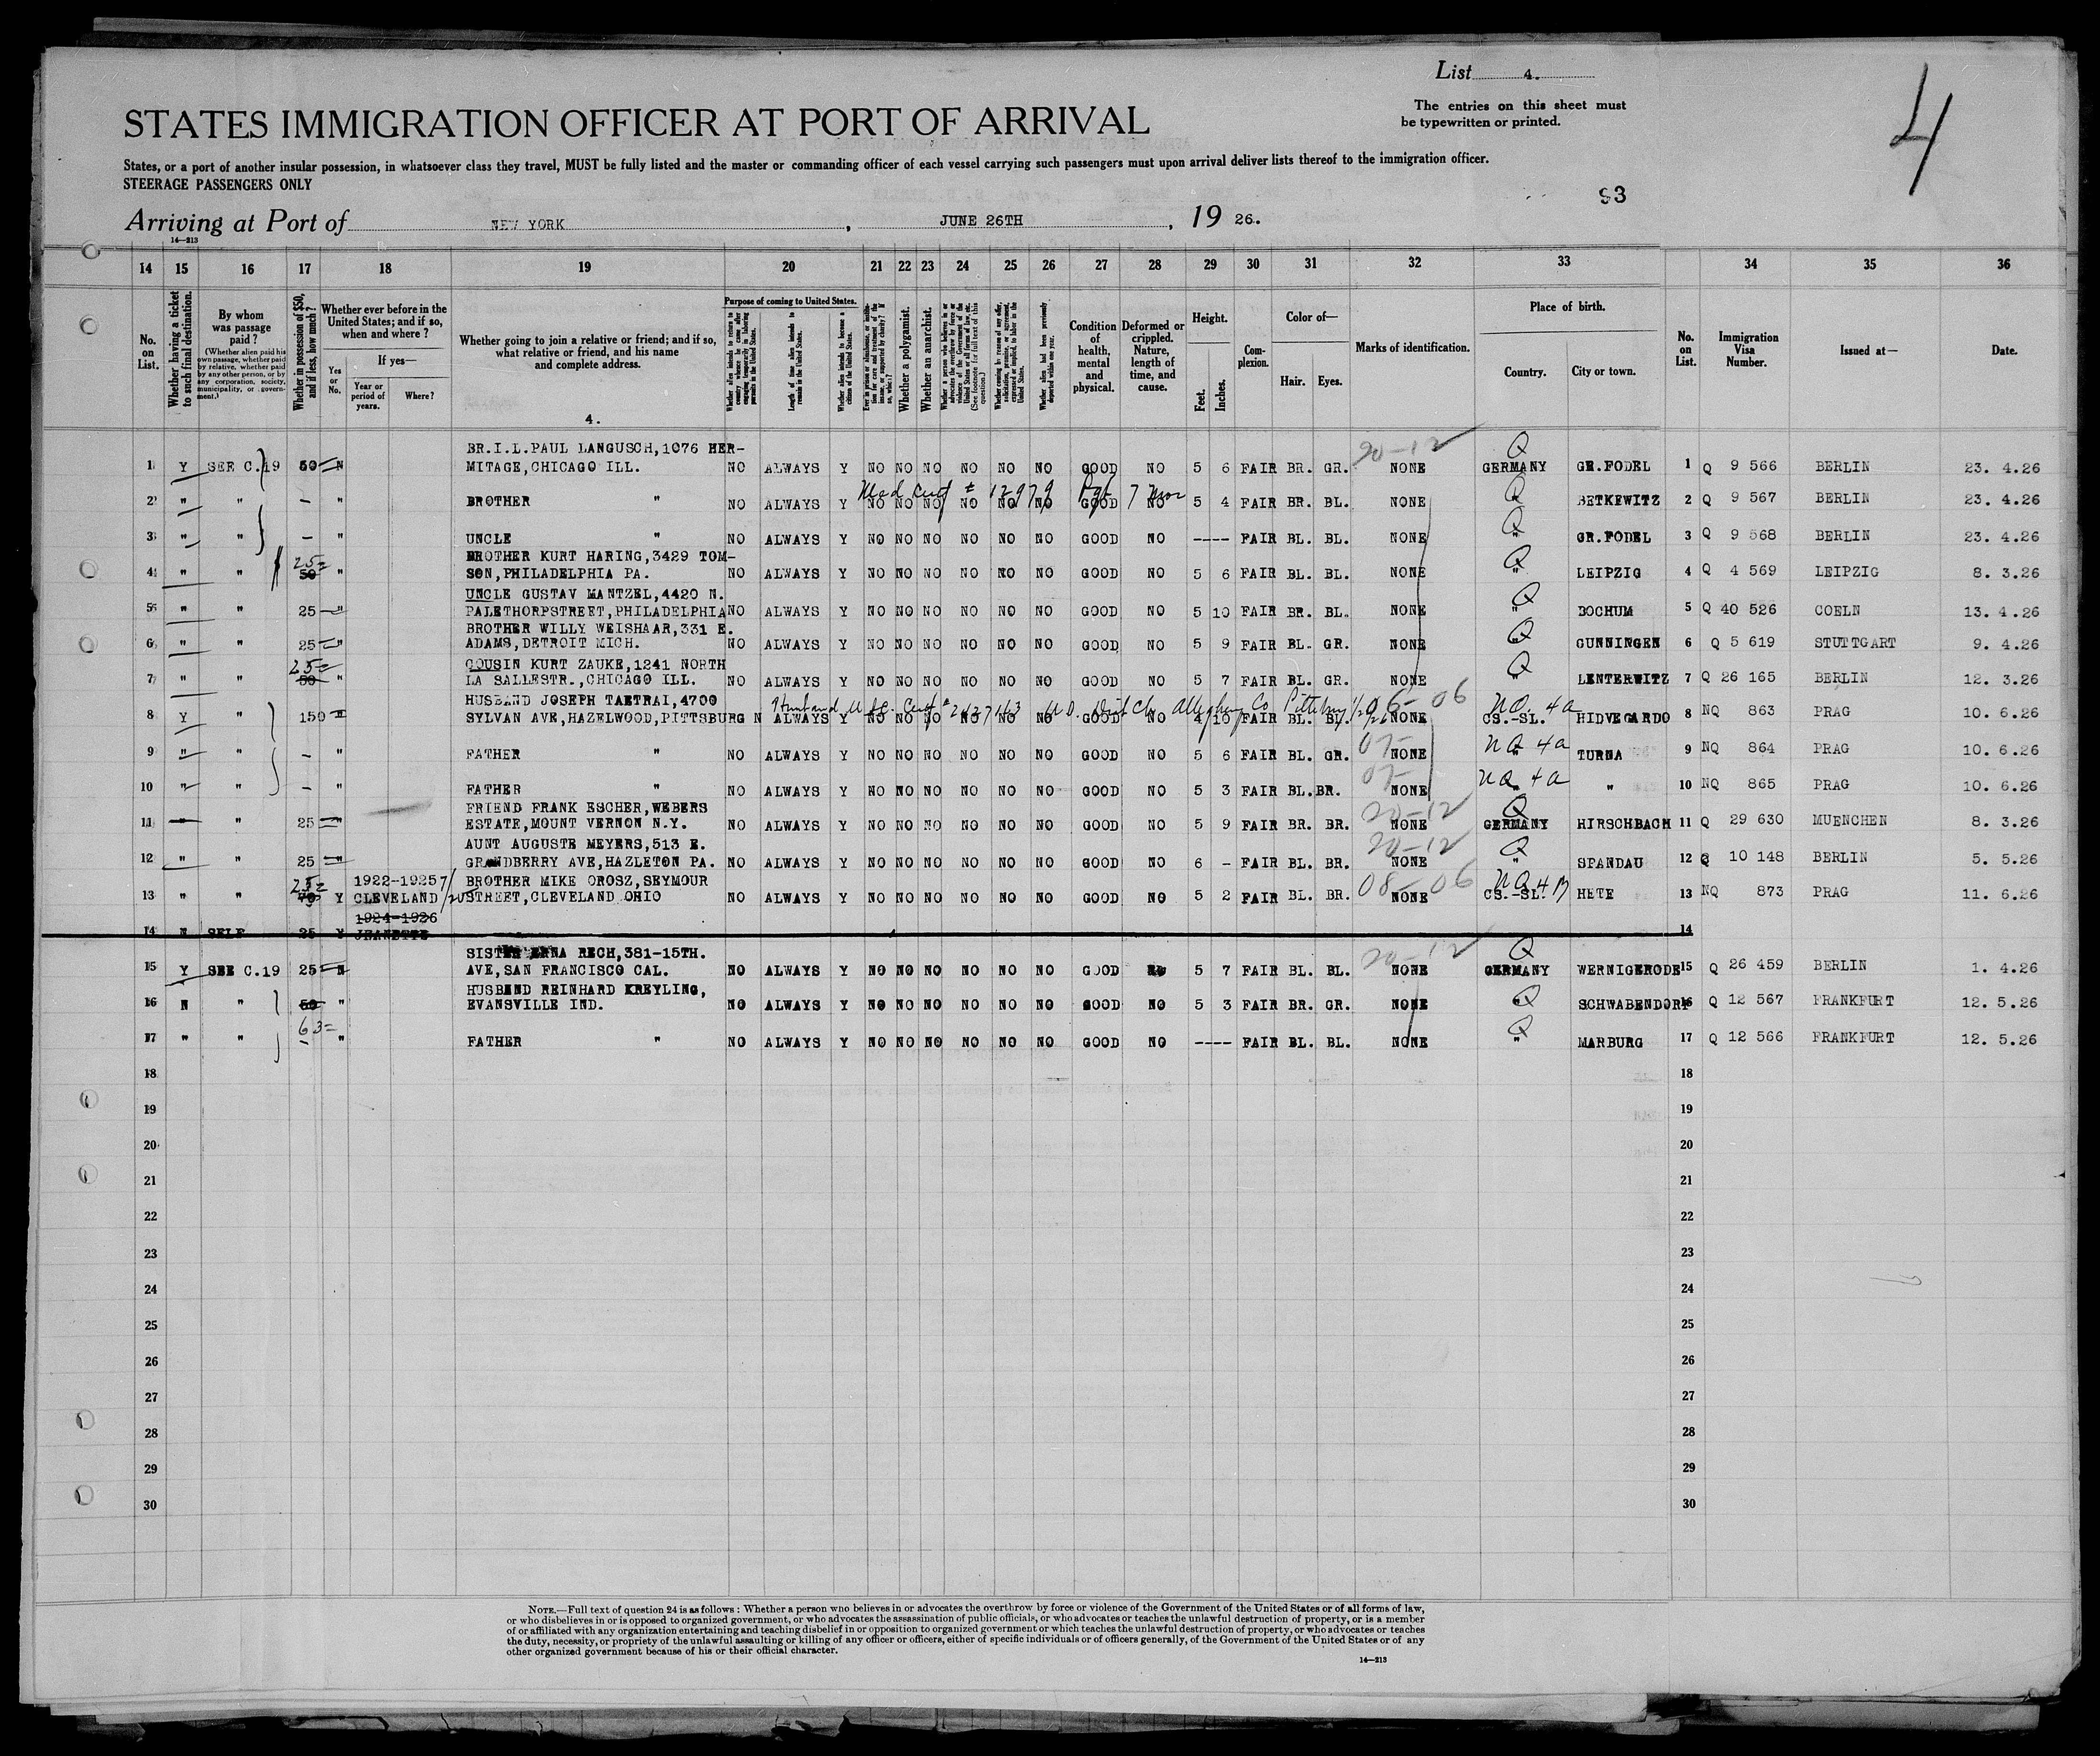 List 4.
The entries on this sheet must
be typewritten or printed.
4
STATES IMMIGRATION OFFICER AT PORT OF ARRIVAL
States, or a port of another insular possession, in whatsoever class they travel, MUST be fully listed and the master or commanding officer of each vessel carrying such passengers must upon arrival deliver lists thereof to the immigration officer.
STEERAGE PASSENGERS ONLY
93
Arriving at Port of NEW YORK, JUNE 26TH, 19 26.
14—213
14 15 16 17 18 19 20 21 22 23 24 25 26 27 28 29 30 31 32 33 34 35 36
No. on List.
Whether having a ticket to such final destination.
By whom was passage paid?
(Whether alien paid his own passage, whether paid by relative, whether paid by any other person, or by any corporation, society, municipality, or government.)
Whether in possession of $50, and if less, how much?
Whether ever before in the United States; and if so, when and where?
Yes or No.
If yes—
Year or period of years.
Where?
Whether going to join a relative or friend; and if so, what relative or friend, and his name and complete address.
4.
Purpose of coming to United States.
Whether alien intends to return to country whence he came after engaging temporarily in laboring pursuits in the United States.
Length of time alien intends to remain in the United States.
Whether alien intends to become a citizen of the United States.
Whether a polygamist.
Whether an anarchist.
Condition of health, mental and physical.
Deformed or crippled. Nature, length of time, and cause.
Height.
Feet. Inches.
Complexion.
Color of—
Hair. Eyes.
Marks of identification.
Place of birth.
Country. City or town.
No. on List.
Immigration Visa Number.
Issued at—
Date.
BR.I.L.PAUL LANGUSCH,1076 HER- 20-12 Q
1 Y SEE C.19 50 N MITAGE,CHICAGO ILL. NO ALWAYS Y NO NO NO NO NO NO GOOD NO 5 6 FAIR BR. GR. NONE GERMANY GR.PODEL 1 Q 9 566 BERLIN 23. 4.26
Med Cert # 12979 Q
2 " " — " BROTHER " NO ALWAYS Y NO NO NO NO NO NO GOOD NO 5 4 FAIR BR. BL. NONE " BETKEWITZ 2 Q 9 567 BERLIN 23. 4.26
Q
3 " " — " UNCLE " NO ALWAYS Y NO NO NO NO NO NO GOOD NO ---- FAIR BL. BL. NONE " GR.PODEL 3 Q 9 568 BERLIN 23. 4.26
25= BROTHER KURT HARING,3429 TOM- Q
4 " " 50 " SON,PHILADELPHIA PA. NO ALWAYS Y NO NO NO NO NO NO GOOD NO 5 6 FAIR BL. BL. NONE " LEIPZIG 4 Q 4 569 LEIPZIG 8. 3.26
UNCLE GUSTAV MANTZEL,4420 N. Q
5 " " 25 " PALETHORPSTREET,PHILADELPHIA NO ALWAYS Y NO NO NO NO NO NO GOOD NO 5 10 FAIR BR. BL. NONE BOCHUM 5 Q 40 526 COELN 13. 4.26
BROTHER WILLY WEISHAAR,331 E. Q
6 " " 25 " ADAMS,DETROIT MICH. NO ALWAYS Y NO NO NO NO NO NO GOOD NO 5 9 FAIR BL. GR. NONE " GUNNINGEN 6 Q 5 619 STUTTGART 9. 4.26
25= COUSIN KURT ZAUKE,1241 NORTH Q
7 " " 50 " LA SALLESTR.,CHICAGO ILL. NO ALWAYS Y NO NO NO NO NO NO GOOD NO 5 7 FAIR BL. GR. NONE " LENTERWITZ 7 Q 26 165 BERLIN 12. 3.26
HUSBAND JOSEPH TAETRAI,4700 Husband U.S.C. Cert # 2427163 U.S. Dist Ct. Allegheny Co Pittsburg 06-06 NQ. 4a
8 Y " 150 " SYLVAN AVE,HAZELWOOD,PITTSBURG N ALWAYS Y NO NO NO NO NO NO GOOD NO 4 10 FAIR BL. BL. NONE CS.-SL. HIDVEGARDO 8 NQ 863 PRAG 10. 6.26
07- NQ 4a
9 " " — " FATHER " NO ALWAYS Y NO NO NO NO NO NO GOOD NO 5 6 FAIR BL. GR. NONE " TURNA 9 NQ 864 PRAG 10. 6.26
07- NQ 4a
10 " " — " FATHER " NO ALWAYS Y NO NO NO NO NO NO GOOD NO 5 3 FAIR BL. BR. NONE " " 10 NQ 865 PRAG 10. 6.26
FRIEND FRANK ESCHER,WEBERS 20-12 Q
11 " " 25 " ESTATE,MOUNT VERNON N.Y. NO ALWAYS Y NO NO NO NO NO NO GOOD NO 5 9 FAIR BR. BR. NONE GERMANY HIRSCHBACH 11 Q 29 630 MUENCHEN 8. 3.26
AUNT AUGUSTE MEYERS,513 E. 20-12 Q
12 " " 25 " GRANDBERRY AVE,HAZLETON PA. NO ALWAYS Y NO NO NO NO NO NO GOOD NO 6 - FAIR BL. BR. NONE " SPANDAU 12 Q 10 148 BERLIN 5. 5.26
25= 1922-1925 BROTHER MIKE OROSZ,SEYMOUR 08-06 NQ 4B
13 " " Y CLEVELAND STREET,CLEVELAND OHIO NO ALWAYS Y NO NO NO NO NO NO GOOD NO 5 2 FAIR BL. BR. NONE CS.-SL. HETE 13 NQ 873 PRAG 11. 6.26
1924-1926
14 N SELF 25 Y JEANETTE 14
SISTER ERNA RECH,381-15TH. 20-12 Q
15 Y SEE C.19 25 N AVE,SAN FRANCISCO CAL. NO ALWAYS Y NO NO NO NO NO NO GOOD NO 5 7 FAIR BL. BL. NONE GERMANY WERNIGERODE 15 Q 26 459 BERLIN 1. 4.26
HUSBAND REINHARD KREYLING, Q
16 N " 50 " EVANSVILLE IND. NO ALWAYS Y NO NO NO NO NO NO GOOD NO 5 3 FAIR BR. GR. NONE " SCHWABENDORF 16 Q 12 567 FRANKFURT 12. 5.26
63= Q
17 " " — " FATHER " NO ALWAYS Y NO NO NO NO NO NO GOOD NO ---- FAIR BL. BL. NONE " MARBURG 17 Q 12 566 FRANKFURT 12. 5.26
18 18
19 19
20 20
21 21
22 22
23 23
24 24
25 25
26 26
27 27
28 28
29 29
30 30
NOTE.—Full text of question 24 is as follows: Whether a person who believes in or advocates the overthrow by force or violence of the Government of the United States or of all forms of law,
or who disbelieves in or is opposed to organized government, or who advocates the assassination of public officials, or who advocates or teaches the unlawful destruction of property, or is a member
of or affiliated with any organization entertaining and teaching disbelief in or opposition to organized government or which teaches the unlawful destruction of property, or who advocates or teaches
the duty, necessity, or propriety of the unlawful assaulting or killing of any officer or officers, either of specific individuals or of officers generally, of the Government of the United States or of any
other organized government because of his or their official character.
14—213